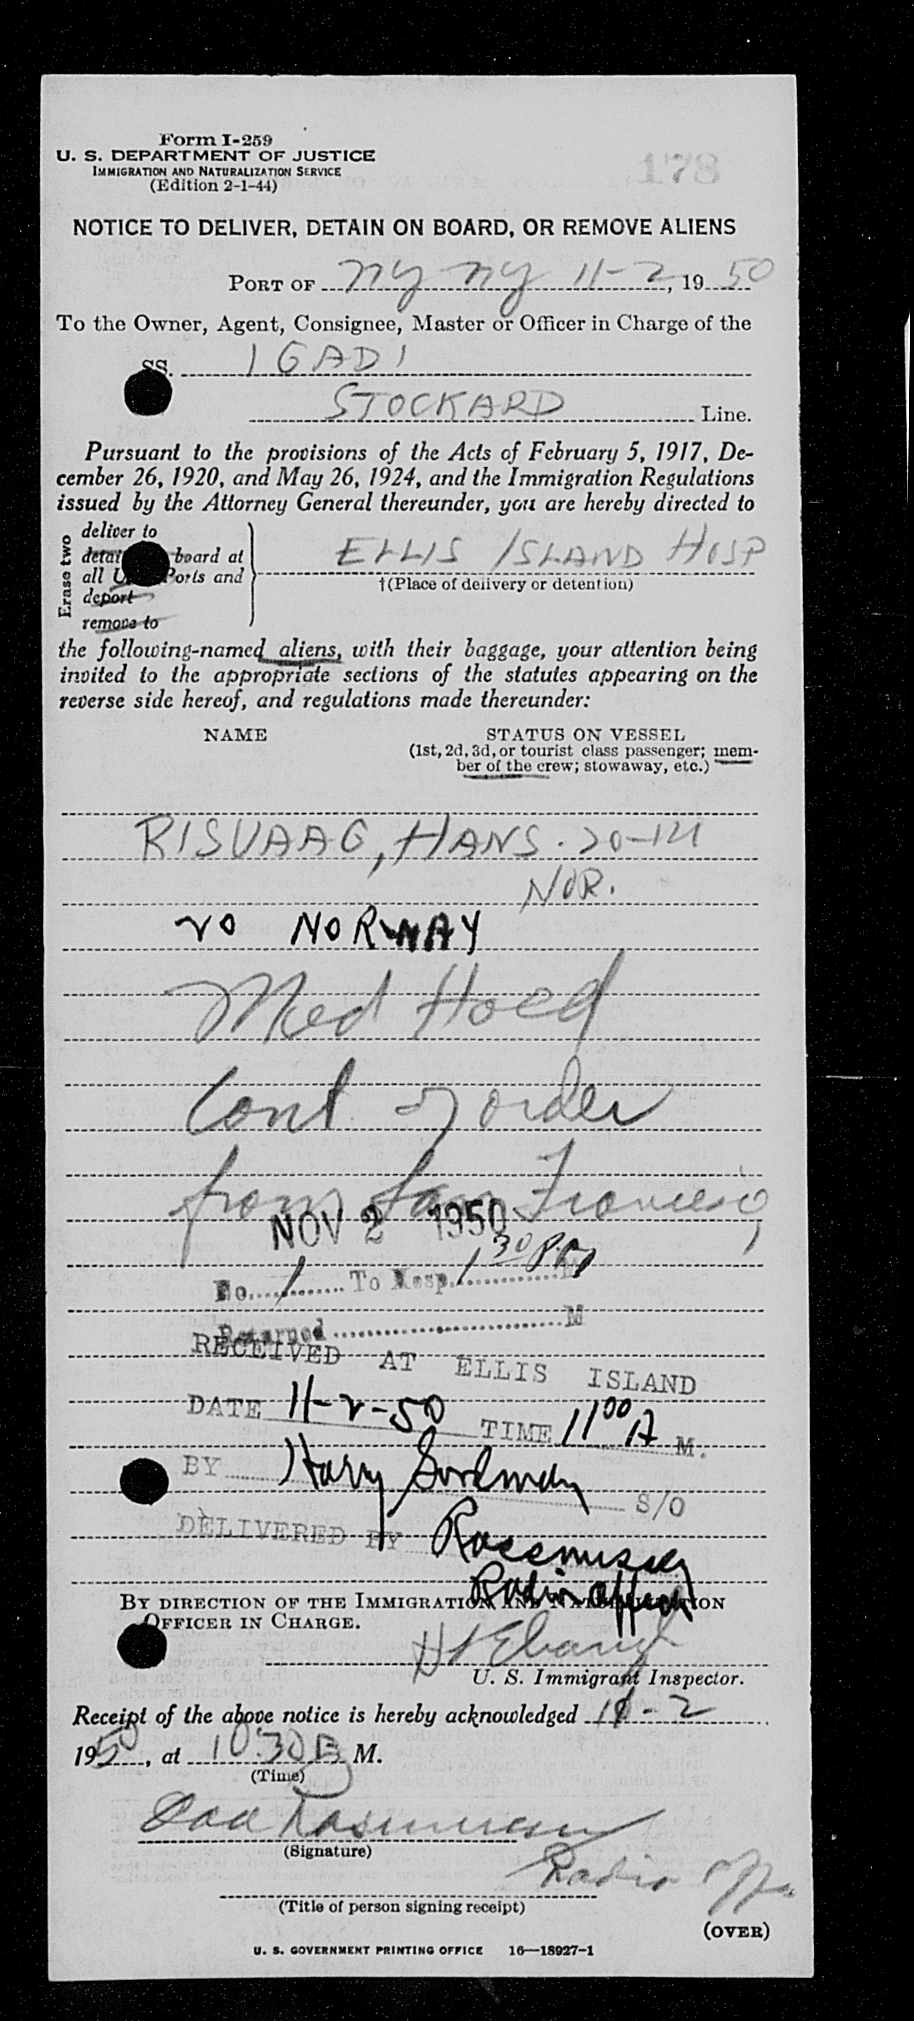 Form I-259
U. S. DEPARTMENT OF JUSTICE
IMMIGRATION AND NATURALIZATION SERVICE
(Edition 2-1-44)
178
NOTICE TO DELIVER, DETAIN ON BOARD, OR REMOVE ALIENS
PORT OF NY NY 11-2, 1950
To the Owner, Agent, Consignee, Master or Officer in Charge of the
SS. IGADI
STOCKARD Line.
Pursuant to the provisions of the Acts of February 5, 1917, De-
cember 26, 1920, and May 26, 1924, and the Immigration Regulations
issued by the Attorney General thereunder, you are hereby directed to
Erase two
deliver to
detain board at
all Ports and
deport
remove to
ELLIS ISLAND HOSP
†(Place of delivery or detention)
the following-named aliens, with their baggage, your attention being
invited to the appropriate sections of the statutes appearing on the
reverse side hereof, and regulations made thereunder:
NAME STATUS ON VESSEL
(1st, 2d, 3d, or tourist class passenger; mem-
ber of the crew; stowaway, etc.)
RISVAAG, HANS. 20-
NOR.
TO NORWAY
Med Hoed
Cont of order
from San Francisco
NOV 2 1950
No. 1 To Hosp. 1 30 P.M.
Returned M
RECEIVED AT ELLIS ISLAND
DATE 11-2-50 TIME 11 00 A M.
BY Harry S/O
DELIVERED BY Rassmussen
Radio Officer
BY DIRECTION OF THE IMMIGRATION AND NATURALIZATION
OFFICER IN CHARGE.
U. S. Immigrant Inspector.
Receipt of the above notice is hereby acknowledged 11-2
1950, at 10:30 M.
(Time)
Rasmussen
(Signature)
Radio Off.
(Title of person signing receipt)
(OVER)
U. S. GOVERNMENT PRINTING OFFICE 16—18927-1